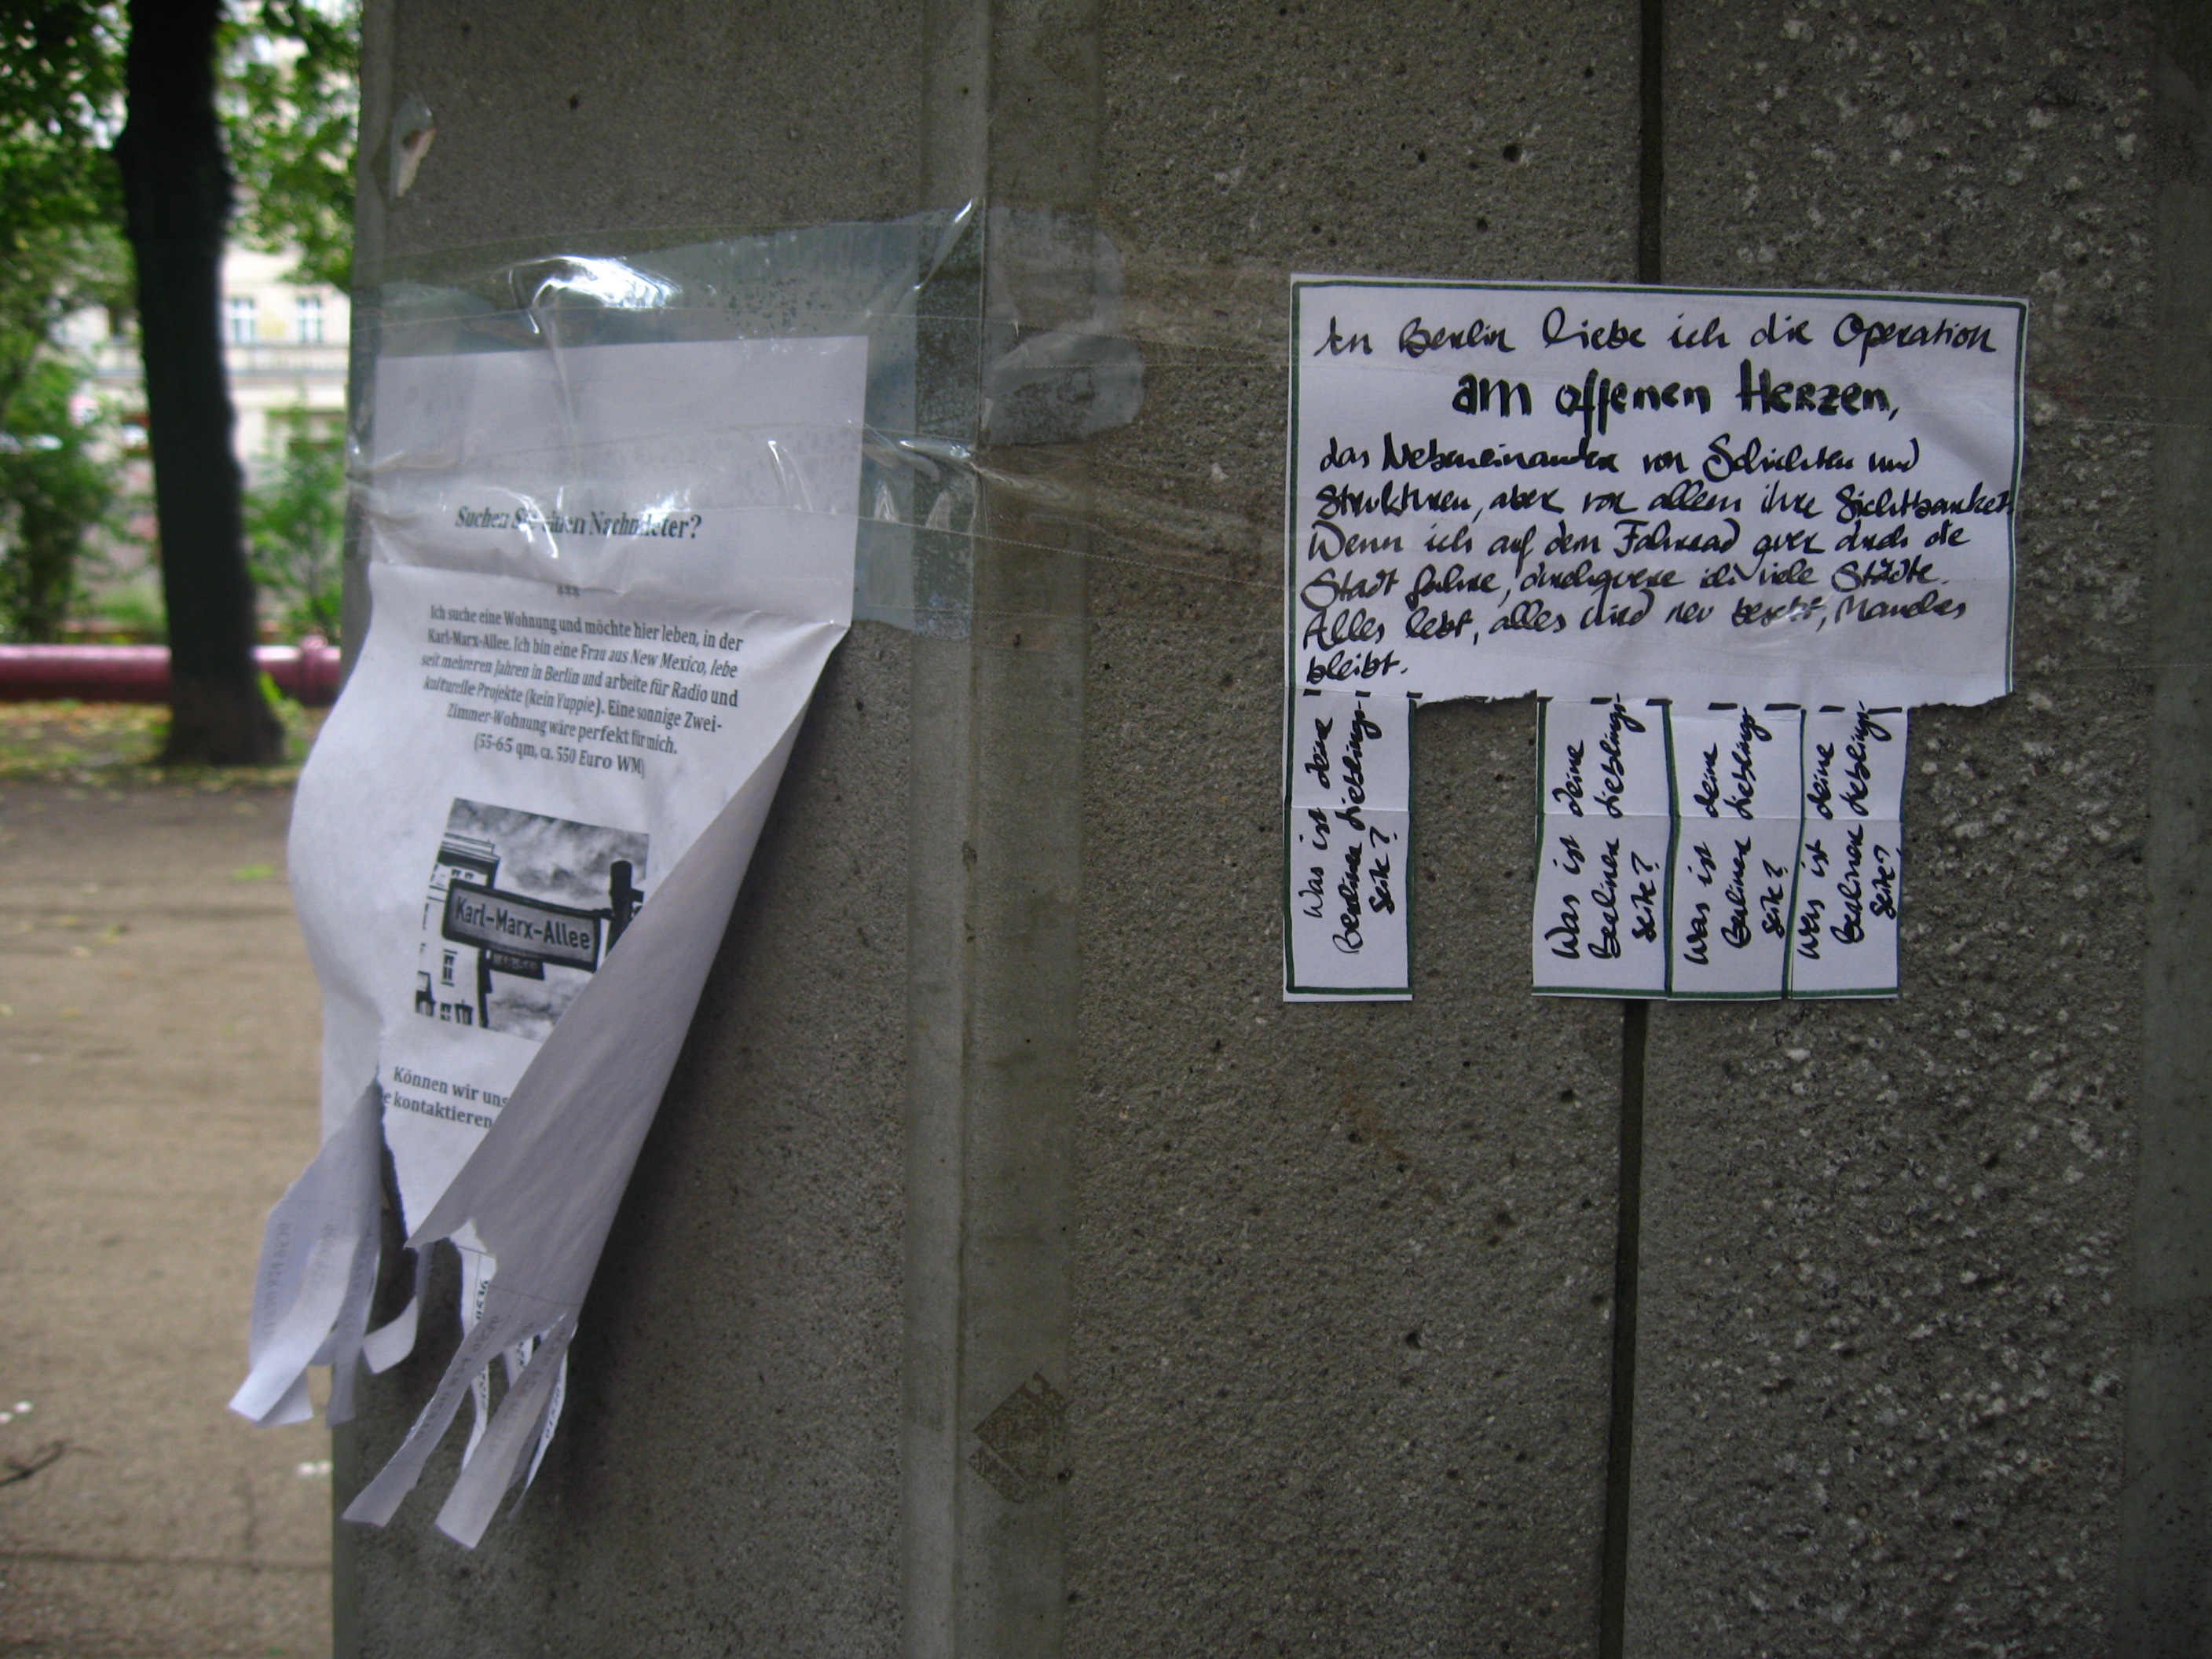 Suchen Sie einen Nachmieter?
***
Ich suche eine Wohnung und möchte hier leben, in der
Karl-Marx-Allee. Ich bin eine Frau aus New Mexico, lebe
seit mehreren Jahren in Berlin und arbeite für Radio und
kulturelle Projekte (kein Yuppie). Eine sonnige Zwei-
Zimmer-Wohnung wäre perfekt für mich.
(55-65 qm, ca. 550 Euro WM)
Karl-Marx-Allee
Können wir uns
e kontaktieren
An Berlin liebe ich die Operation
am offenen Herzen,
das Nebeneinander von Schichten und
Strukturen, aber vor allem ihre Sichtbarkeit.
Wenn ich auf dem Fahrrad quer durch die
Stadt fahre, durchquere ich viele Städte.
Alles lebt, alles wird neu besetzt, Manches
bleibt.
Was ist deine
Berliner Lieblings-
seite?
Was ist deine
Berliner Lieblings-
seite?
Was ist deine
Berliner Lieblings-
seite?
Was ist deine
Berliner Lieblings-
seite?